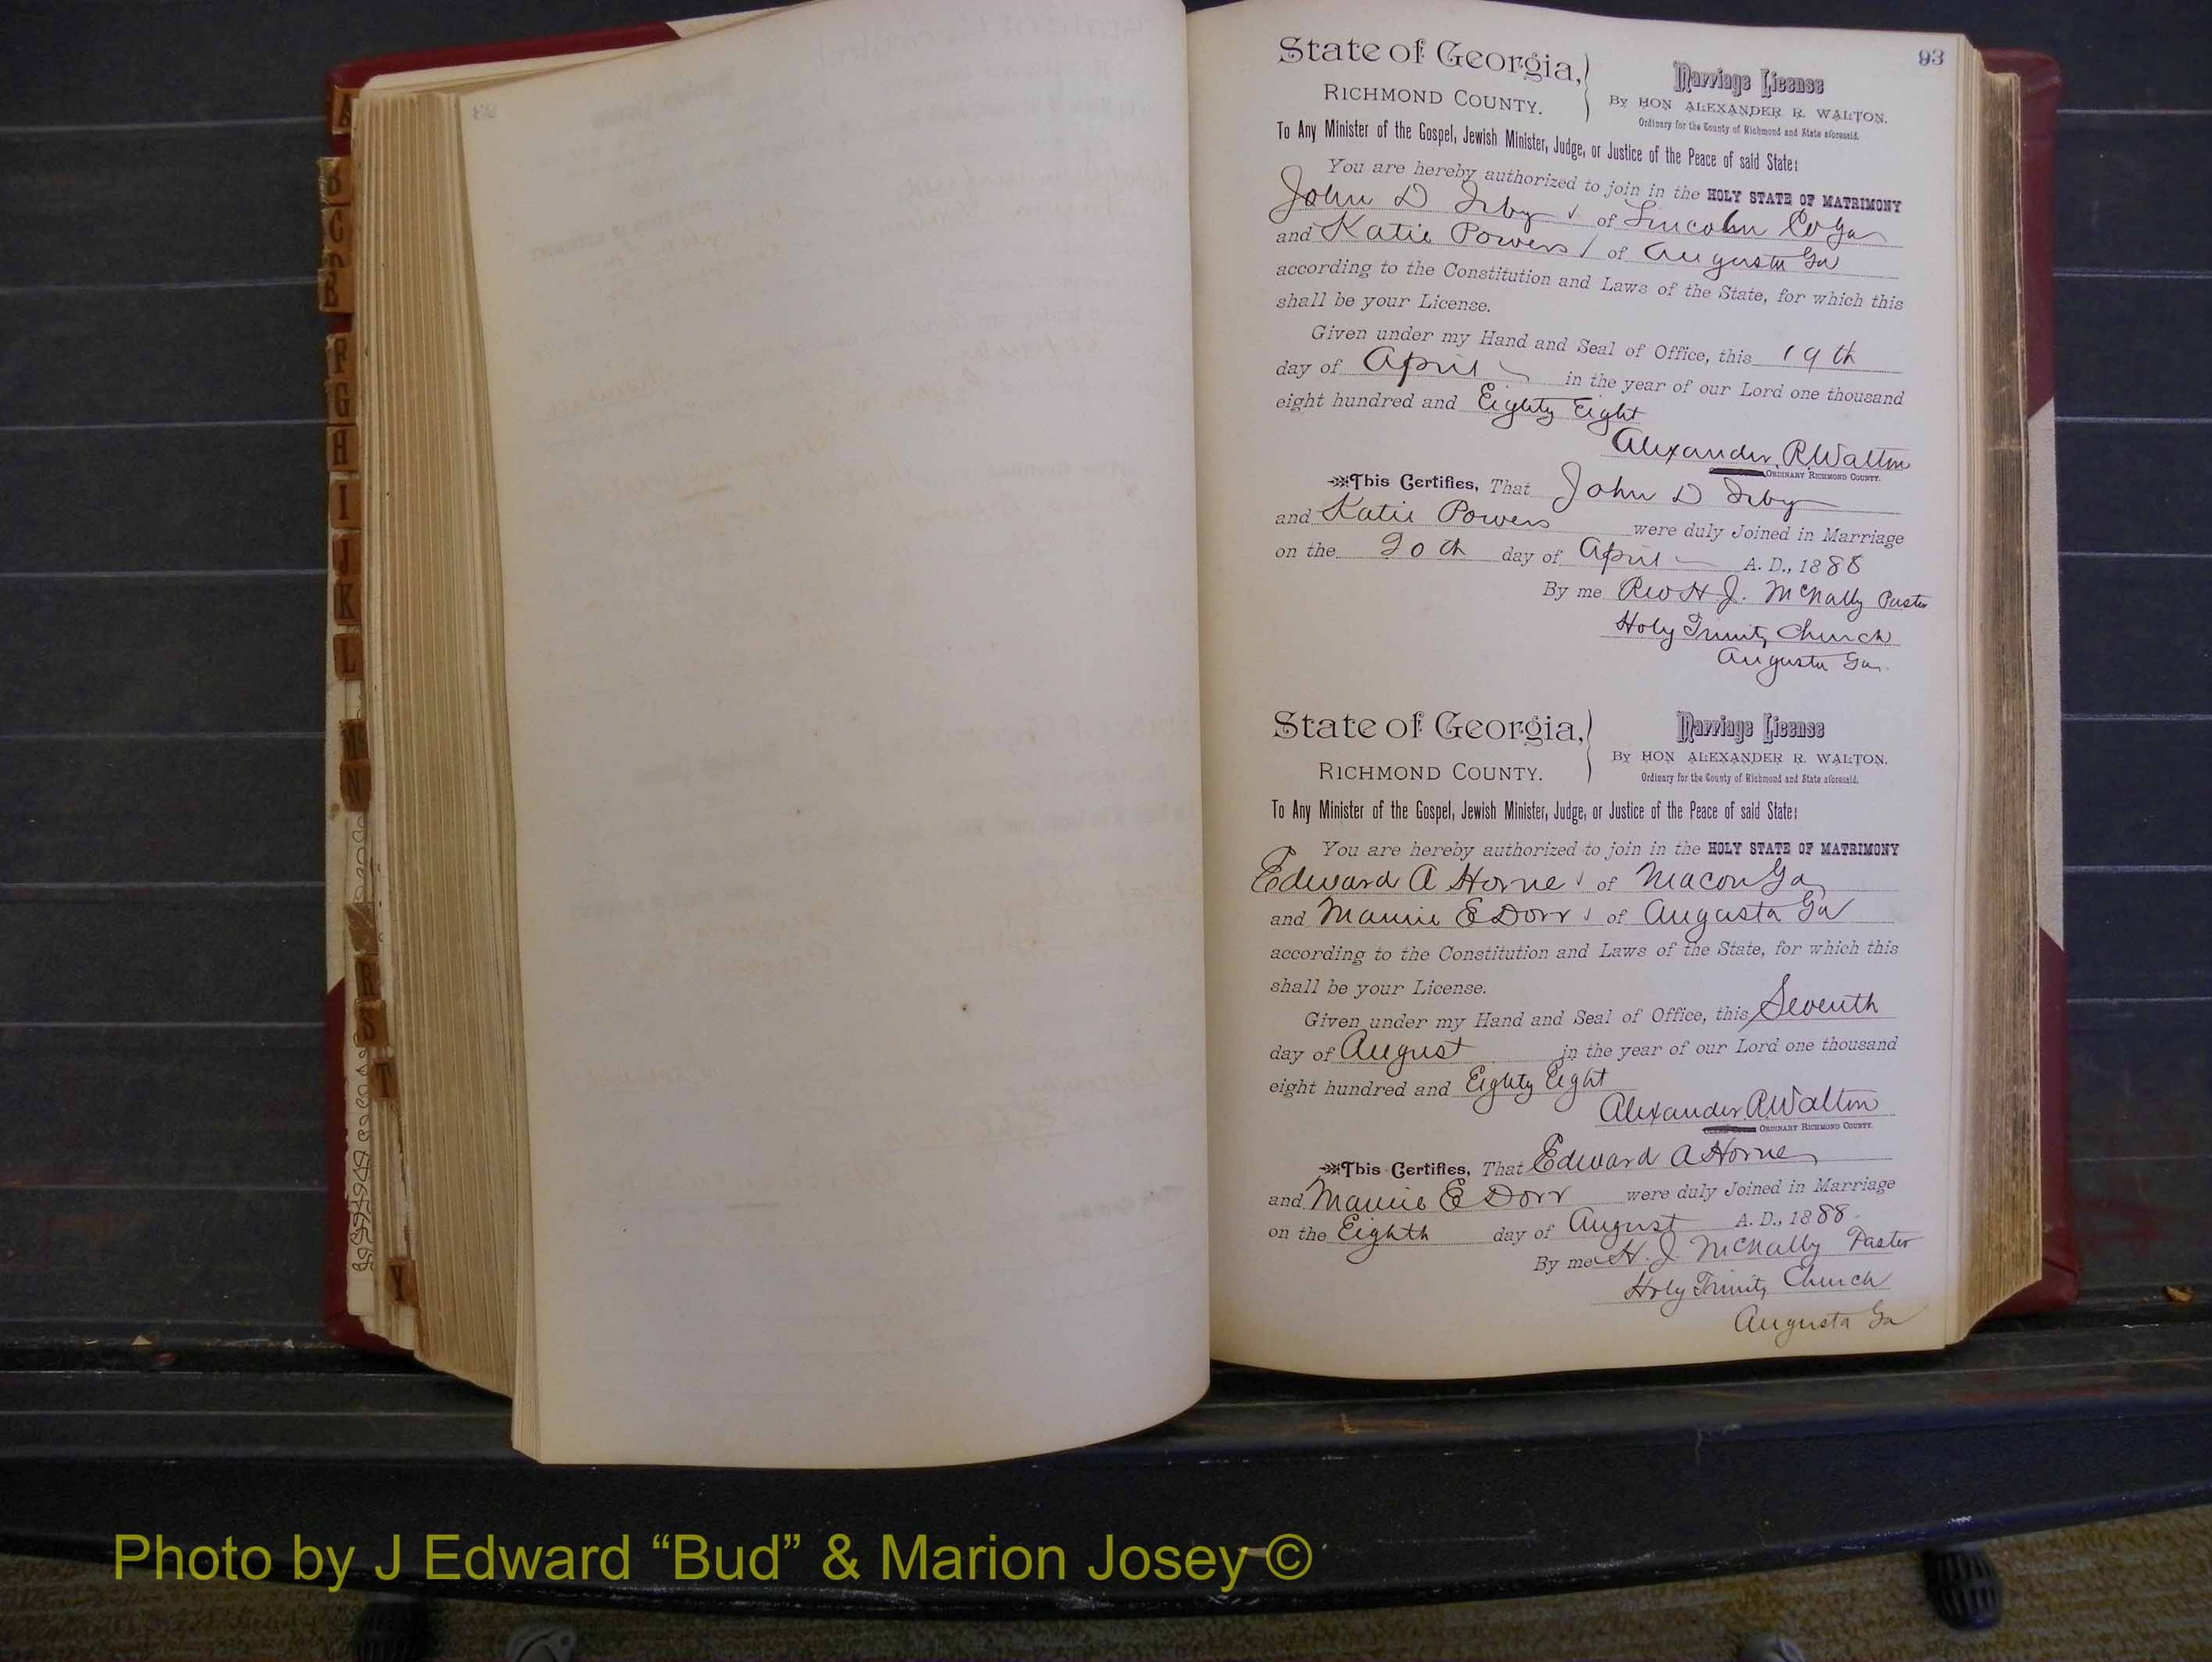 93
State of Georgia,
RICHMOND COUNTY.
Marriage License
BY HON ALEXANDER R. WALTON.
Ordinary for the County of Richmond and State aforesaid.
To Any Minister of the Gospel, Jewish Minister, Judge, or Justice of the Peace of said State:
You are hereby authorized to join in the HOLY STATE OF MATRIMONY
John D Irby of Lincoln Co Ga
and Katie Powers of Augusta Ga
according to the Constitution and Laws of the State, for which this
shall be your License.
Given under my Hand and Seal of Office, this 19th
day of April in the year of our Lord one thousand
eight hundred and Eighty Eight
Alexander R Walton
ORDINARY RICHMOND COUNTY.
This Certifies, That John D Irby
and Katie Powers were duly Joined in Marriage
on the 20th day of April A. D., 1888
By me Rev H. J. McNally Pastor
Holy Trinity Church
Augusta Ga.
State of Georgia,
RICHMOND COUNTY.
Marriage License
BY HON ALEXANDER R. WALTON.
Ordinary for the County of Richmond and State aforesaid.
To Any Minister of the Gospel, Jewish Minister, Judge, or Justice of the Peace of said State:
You are hereby authorized to join in the HOLY STATE OF MATRIMONY
Edward A Horne of Macon Ga
and Mamie E Dorr of Augusta Ga
according to the Constitution and Laws of the State, for which this
shall be your License.
Given under my Hand and Seal of Office, this Seventh
day of August in the year of our Lord one thousand
eight hundred and Eighty Eight
Alexander R Walton
ORDINARY RICHMOND COUNTY.
This Certifies, That Edward A Horne
and Mamie E Dorr were duly Joined in Marriage
on the Eighth day of August A. D., 1888
By me H. J. McNally Pastor
Holy Trinity Church
Augusta Ga
A
B
C
E
F
G
H
I
J
K
L
N
R
S
T
Y
Photo by J Edward “Bud” & Marion Josey ©